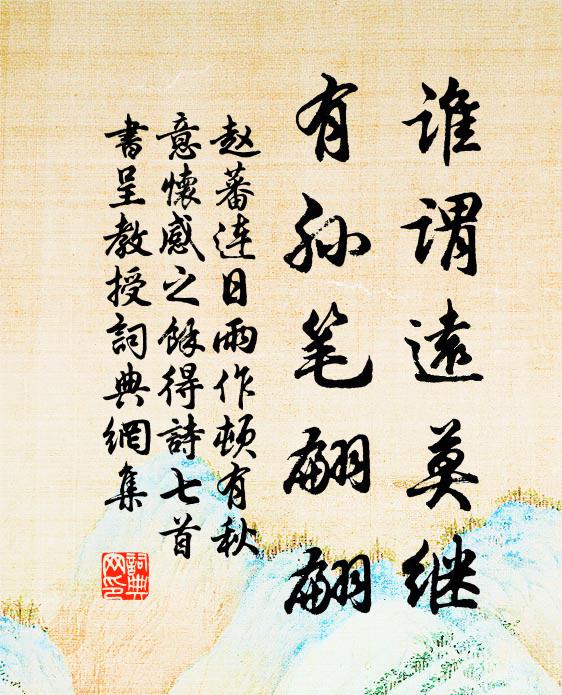 谁謂遠莫继
有孙笔翩翩
赵蕃连日雨作頓有秋
意懷感之餘得詩七首
書呈教授詞典網集
詞典网印